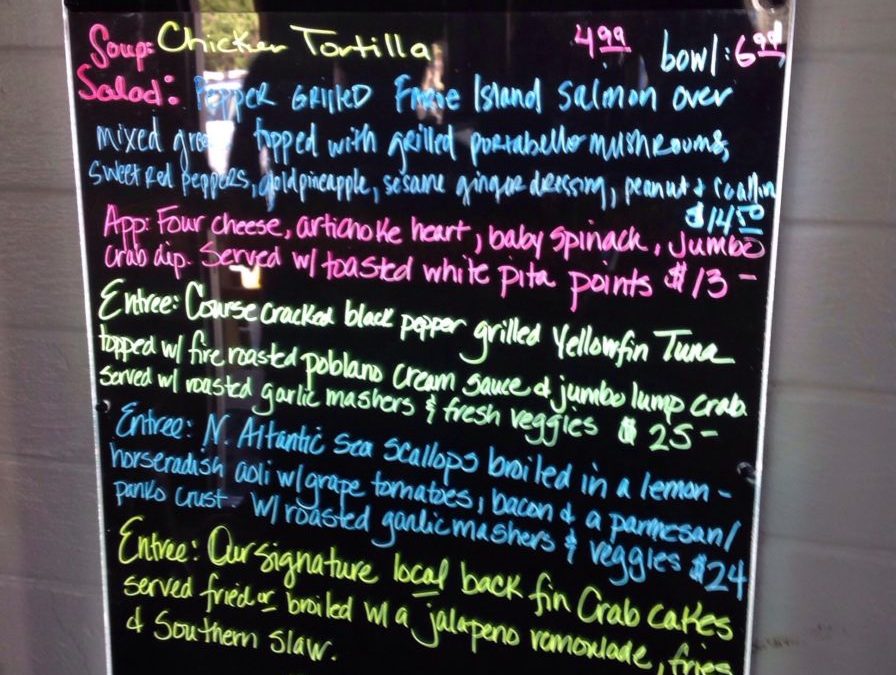 Soup: Chicken Tortilla 4.99 bowl: 6.99
Salad: Pepper Grilled Faroe Island Salmon over
mixed greens topped with grilled portabello mushrooms,
sweet red peppers, gold pineapple, sesame ginger dressing, peanut &
$14.50
App: Four cheese, artichoke heart, baby spinach, jumbo
crab dip. Served w/ toasted white pita points $13-
Entree: Course cracked black pepper grilled Yellowfin Tuna
topped w/ fire roasted poblano cream sauce & jumbo lump crab
served w/ roasted garlic mashers & fresh veggies $25-
Entree: N. Altantic sea scallops broiled in a lemon-
horseradish aoli w/ grape tomatoes, bacon & a parmesan/
panko crust w/ roasted garlic mashers & veggies $24
Entree: Our signature local back fin Crab cakes
served fried or broiled w/ a jalapeno remoulade, fries
& Southern slaw.